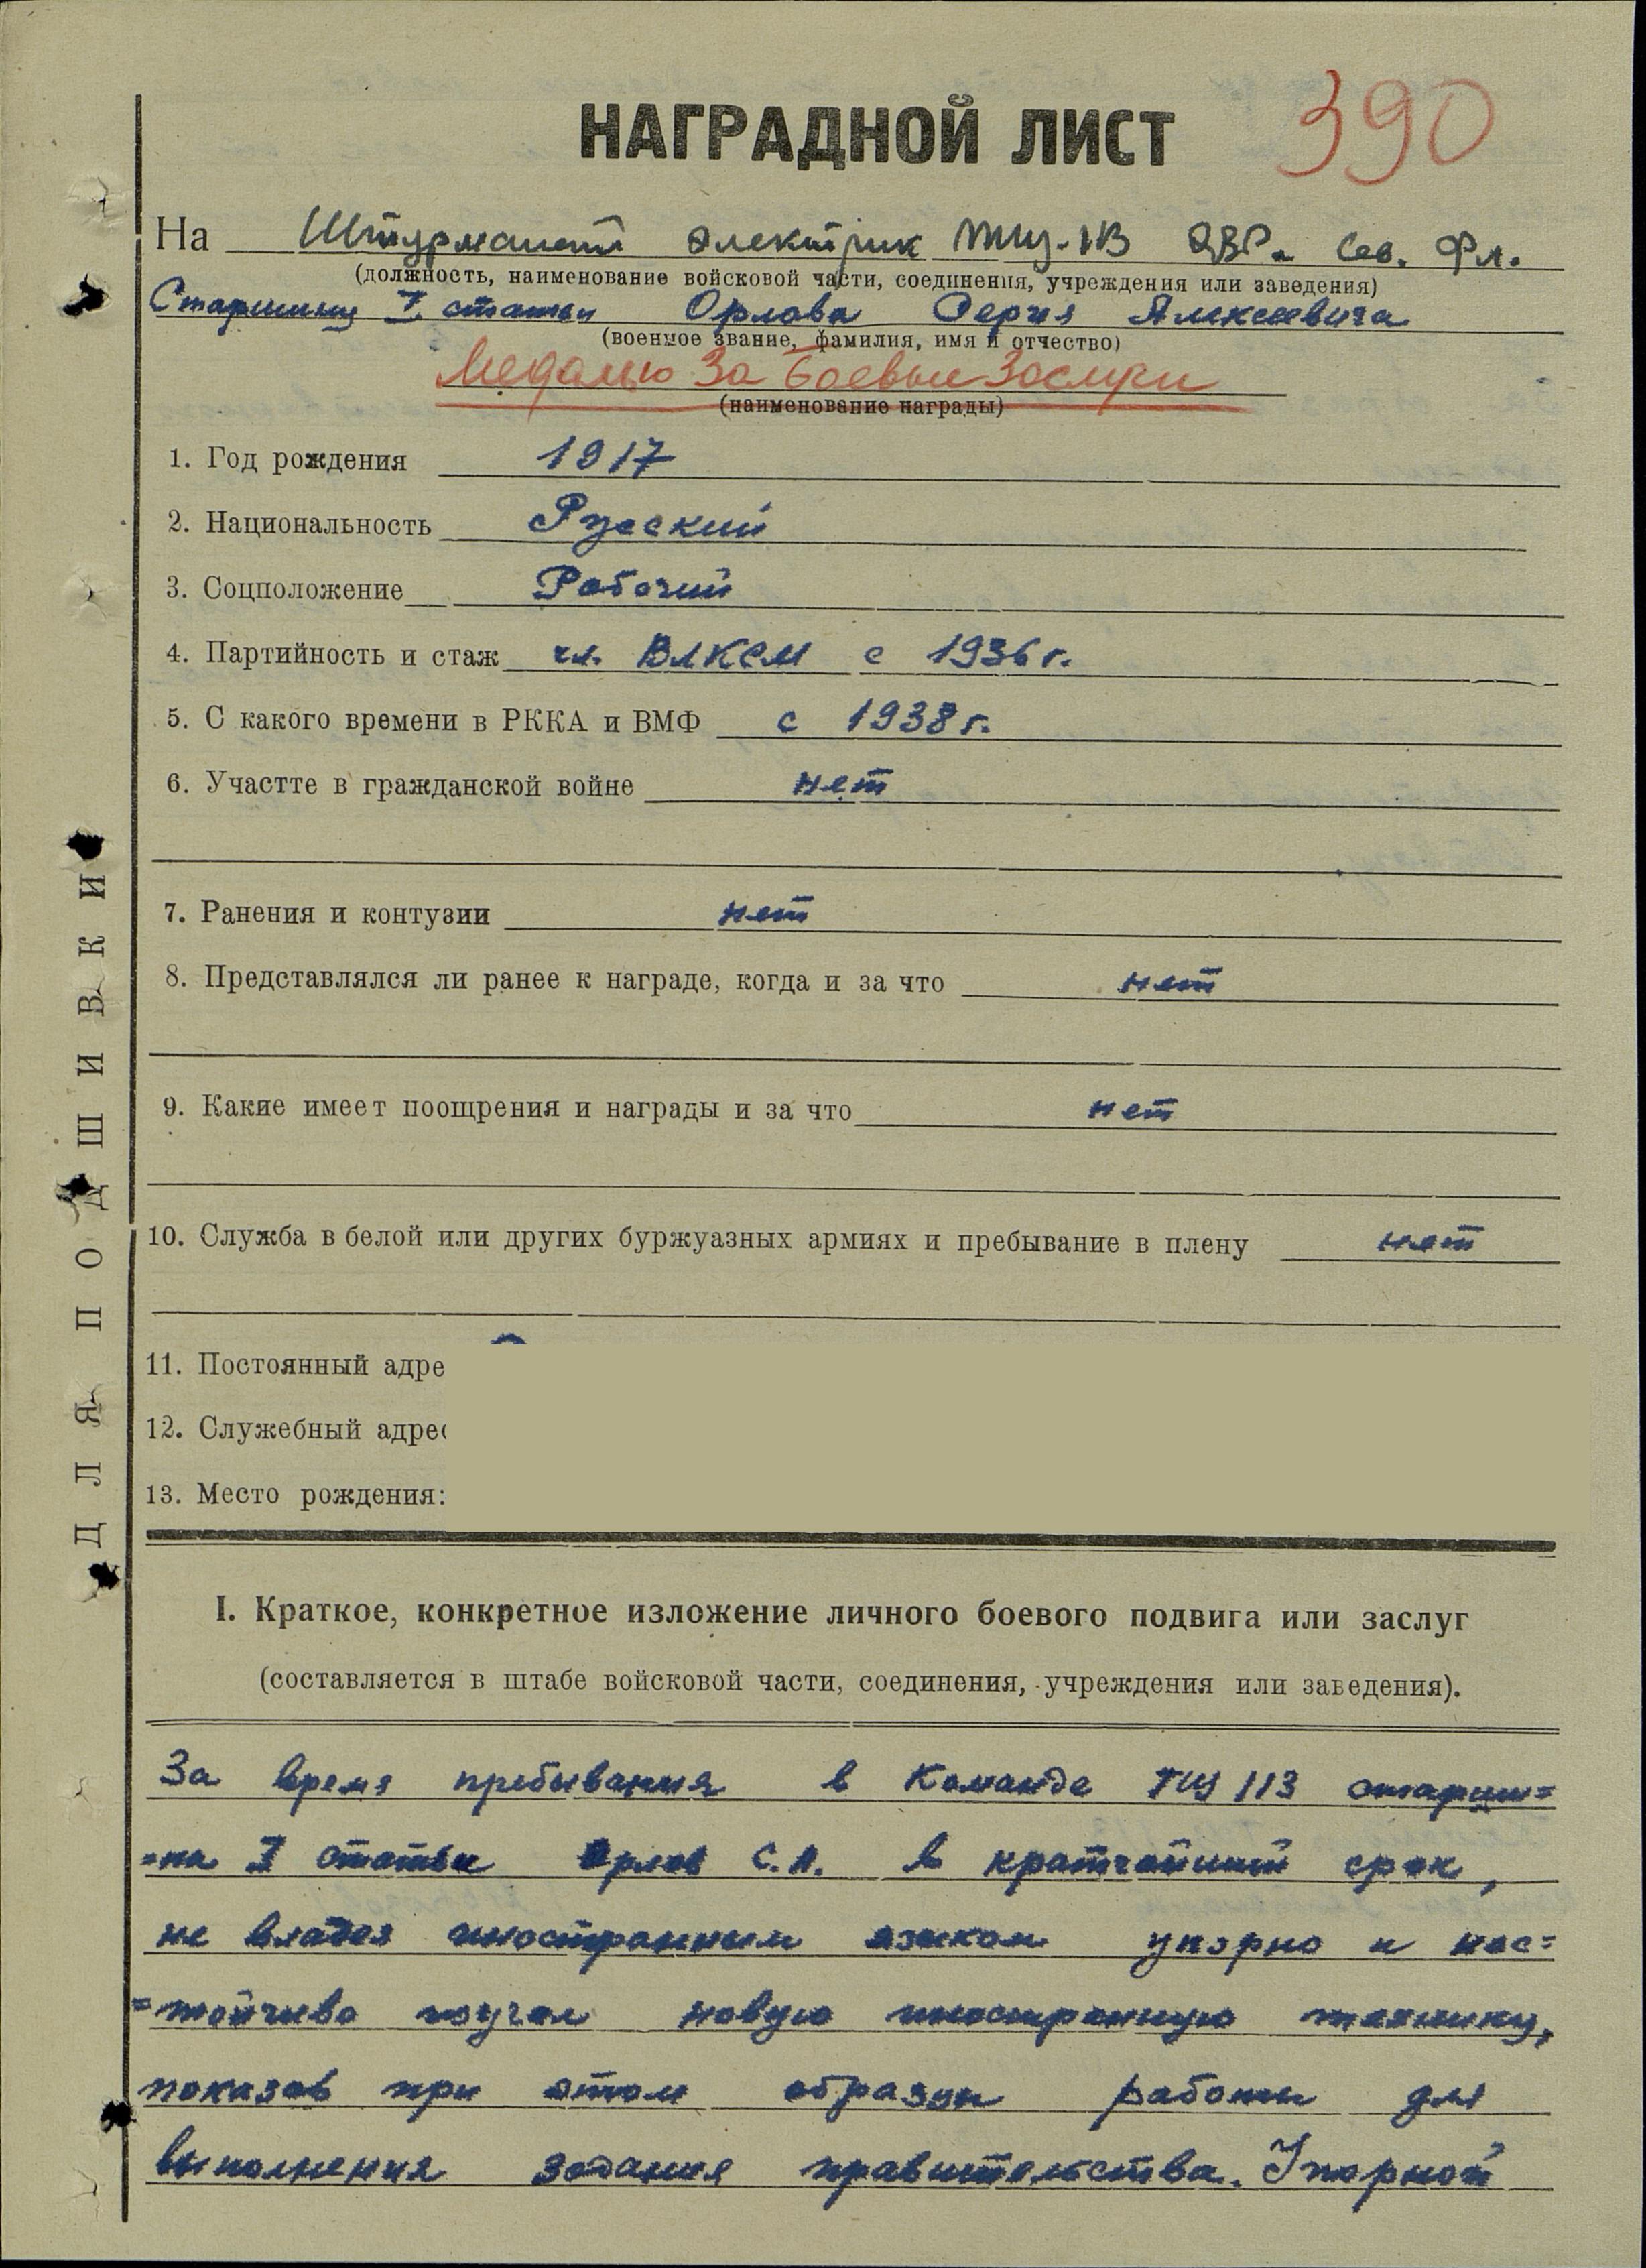 НАГРАДНОЙ ЛИСТ 390
На Штурманский электрик ТЩ-113 ОВР. Сев. Фл.
(должность, наименование войсковой части, соединения, учреждения или заведения)
Старшину I статьи Орлова Сергея Алексеевича
(военное звание, фамилия, имя и отчество)
Медалью За боевые заслуги
(наименование награды)
1. Год рождения 1917
2. Национальность Русский
3. Соцположение Рабочий
4. Партийность и стаж чл. ВЛКСМ с 1936 г.
5. С какого времени в РККА и ВМФ с 1938 г.
6. Участте в гражданской войне нет
7. Ранения и контузии нет
8. Представлялся ли ранее к награде, когда и за что нет
9. Какие имеет поощрения и награды и за что нет
10. Служба в белой или других буржуазных армиях и пребывание в плену нет
11. Постоянный адре
12. Служебный адрес
13. Место рождения:
ДЛЯ ПОДШИВКИ
I. Краткое, конкретное изложение личного боевого подвига или заслуг
(составляется в штабе войсковой части, соединения, учреждения или заведения).
За время пребывания в команде ТЩ 113 старши=
=на I статьи Орлов С.А. в кратчайший срок,
не владея иностранным языком упорно и нас=
=тойчиво изучал новую иностранную технику,
показав при этом образцы работы для
выполнения задания правительства. Упорной